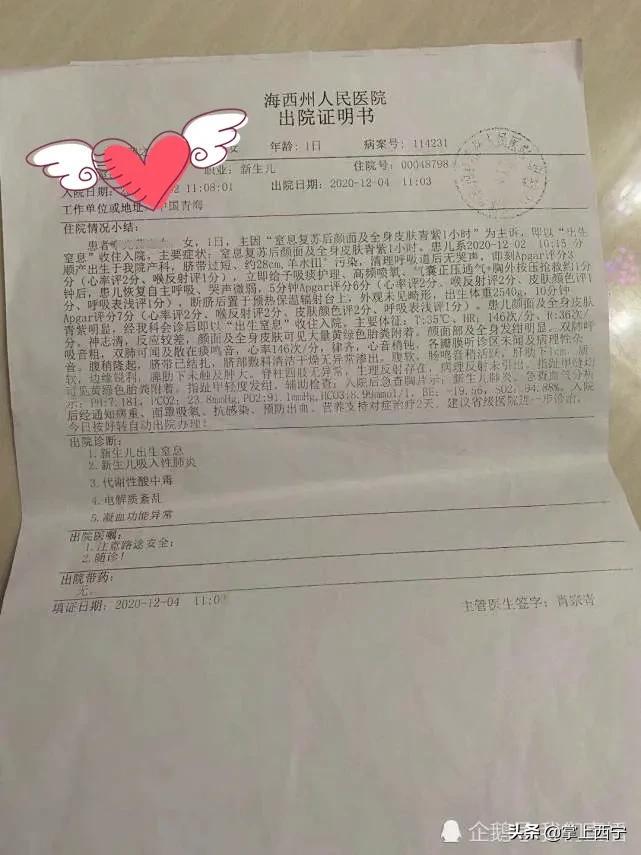 海西州人民医院
出院证明书
女 年龄:1日 病案号: 114231
职业: 新生儿 住院号: 00048798
入院日期: 11:08:01 出院日期: 2020-12-04 11:03
工作单位或地址: 中国青海
住院情况小结:
患者 女, 1日, 主因"窒息复苏后颜面及全身皮肤青紫1小时"为主诉, 即以"出生
窒息"收住入院。主要症状: 窒息复苏后颜面及全身皮肤青紫1小时。患儿系2020-12-02 10:15 分
顺产出生于我院产科, 脐带过短、约28cm, 羊水 污染, 清理呼吸道后无哭声, 即刻Apgar评分3
分(心率评2分、喉反射评1分), 立即给予吸痰护理、高频喷氧、气囊正压通气+胸外按压抢救约1分
钟后, 患儿恢复自主呼吸、哭声微弱, 5分钟Apgar评分6分(心率评2分、喉反射评2分、皮肤颜色评1
分、呼吸表浅评1分), 断脐后置于预热保温辐射台上, 外观未见畸形, 出生体重2540g, 10分钟
Apgar评分7分(心率评2分、喉反射评2分、皮肤颜色评2分、呼吸表浅评1分)。患儿颜面及全身皮肤
青紫明显, 经我科会诊后即以"出生窒息"收住入院。主要体征: T:35℃, HR: 146次/分, R:36次/
分, 神志清, 反应较差, 颜面及全身皮肤可见大量黄绿色胎粪附着, 颜面部及全身发绀明显, 双肺呼
吸音粗, 双肺可闻及散在痰鸣音, 心率146次/分, 律齐, 心音稍钝, 各瓣膜听诊区未闻及病理性杂
音。腹稍隆起, 脐带已结扎, 脐部敷料清洁干燥无异常渗出。腹软, 肠鸣音稍活跃, 肝肋下1cm, 质
软, 边缘锐利, 脾肋下未触及肿大。脊柱四肢无异常, 生理反射存在, 病理反射未引出。指趾甲缝
可见黄绿色胎粪附着, 指趾甲轻度发绀。辅助检查: 入院后急查胸片示: 新生儿肺炎。急查血气分析
示: PH:7.181, PCO2: 23.8mmHg, PO2:91.1mmHg, HCO3:8.99mmol/l, BE: -19.56, SO2: 94.88%。入院
后经通知病重、面罩吸氧、抗感染、预防出血、营养支持对症治疗2天。建议省级医院进一步诊治,
今日按好转自动出院办理!
出院诊断:
1.新生儿出生窒息
2.新生儿吸入性肺炎
3.代谢性酸中毒
4.电解质紊乱
5.凝血功能异常
出院医嘱:
1.注意路途安全;
2.随诊!
出院带药:
无.
填证日期: 2020-12-04 11:0 主管医生签字: 肖宗青
头条 @掌上西宁